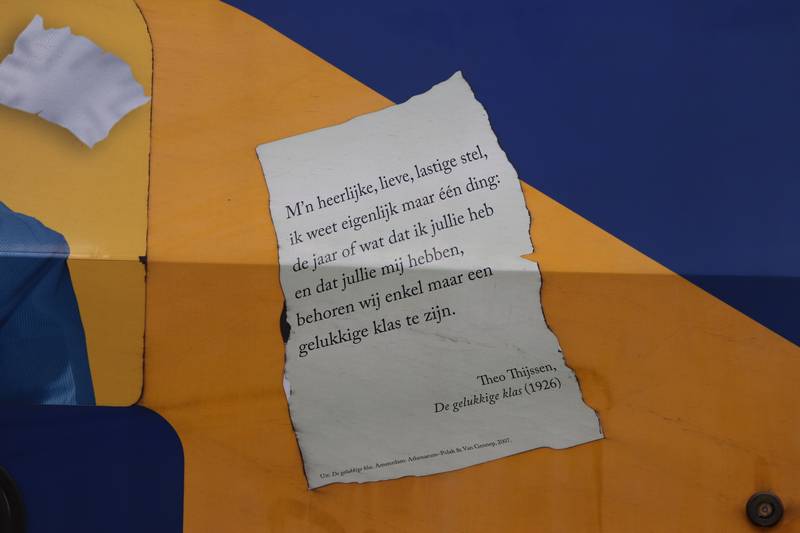 M'n heerlijke, lieve, lastige stel,
ik weet eigenlijk maar één ding:
de jaar of wat dat ik jullie heb
en dat jullie mij hebben,
behoren wij enkel maar een
gelukkige klas te zijn.
Theo Thijssen,
De gelukkige klas (1926)
Uit: De gelukkige klas. Amsterdam: Athenaeum–Polak & Van Gennep, 2007.